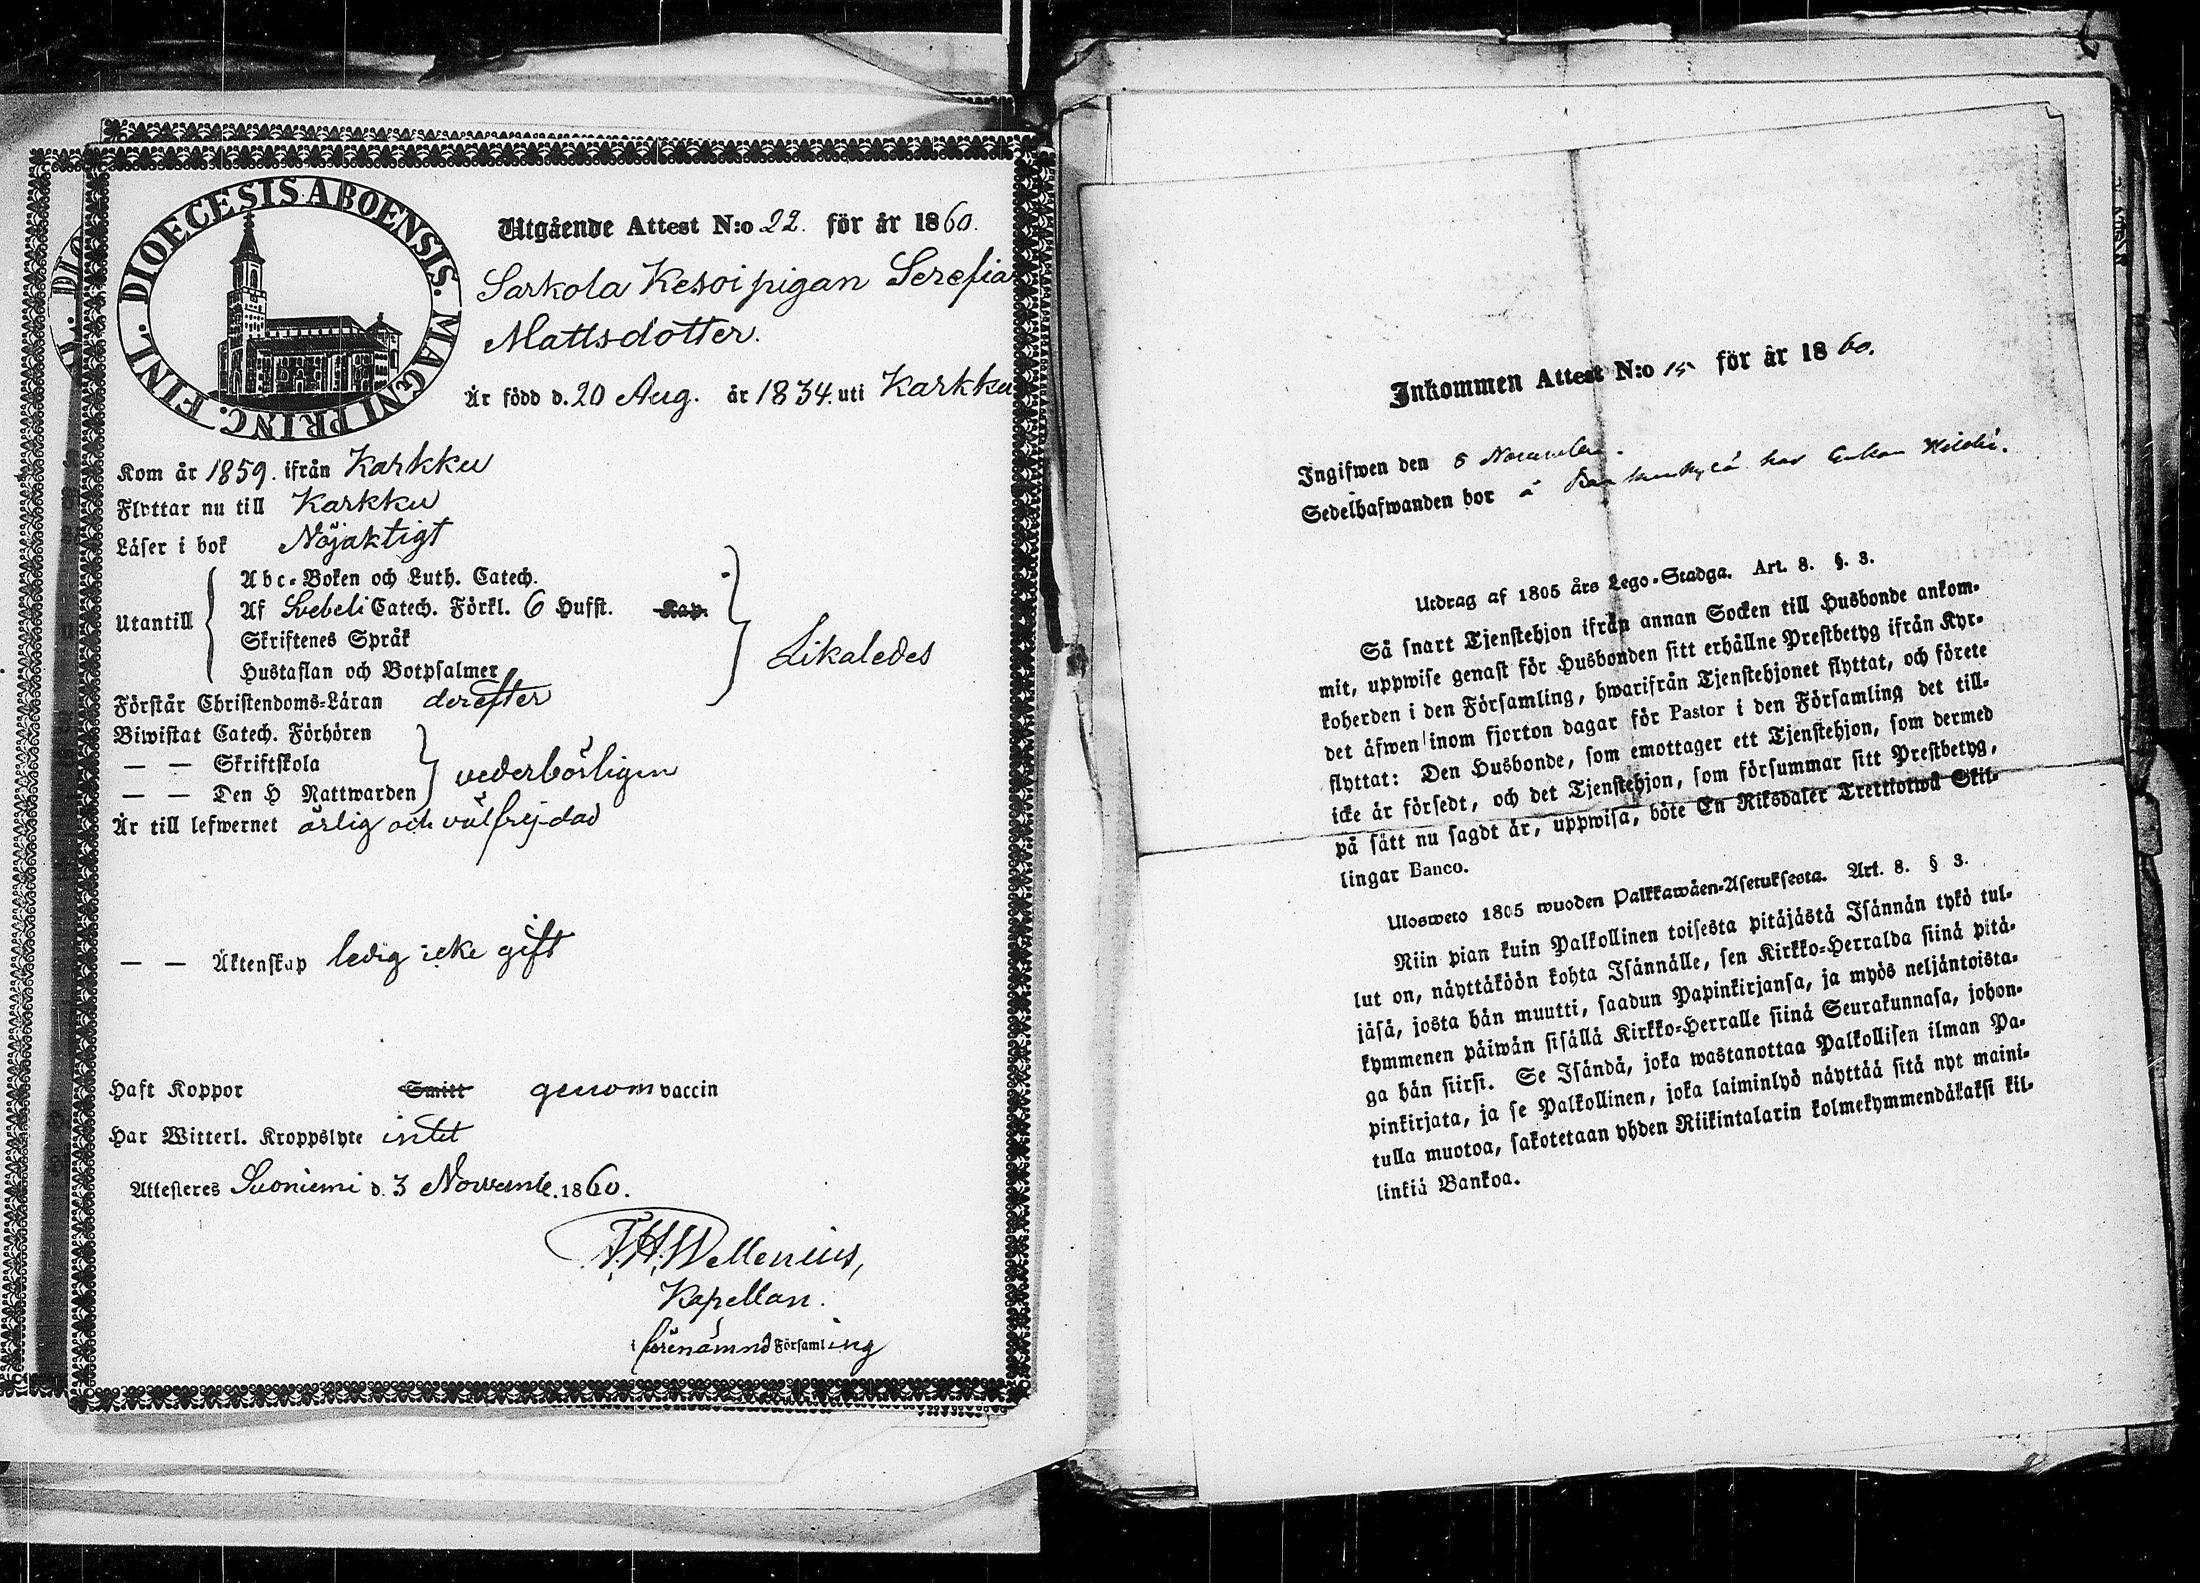 DIOECESIS ABOENSIS. MAGNI PRINC. FINL.
Utgående Attest N:o 22. för år 1860.
Sarkola Kesoi pigan Serefia
Mattsdotter.
Är född d. 20 Aug. år 1834. uti Karkku
Kom år 1859. ifrån Karkku
Flyttar nu till Karkku
Läser i bok Nöjaktigt
Utantill
Abc-Boken och Luth. Catech.
Af Svebeli Catech. Förkl. 6 Hufst. Kap.
Skriftenes Språk
Hustaflan och Botpsalmer
Likaledes
Förstår Christendoms-Läran derefter
Biwistat Catech. Förhören
— — Skriftskola
— — Den H Nattwarden
vederbörligen
Är till lefwernet ärlig och välfrejdad
— — Äktenskap ledig icke gift
Haft Koppor Smitt genom vaccin
Har Witterl. Kroppslyte intet
Attesteres Suoniemi d. 3 Novemb. 1860.
F. H. Wellenius,
Kapellan.
i förenämnd Församling
Inkommen Attest N:o 15 för år 1860.
Ingifwen den 8 November.
Sedelhafwanden bor å har Enkan
Utdrag af 1805 års Lego-Stadga. Art. 8. §. 3.
Så snart Tjenstehjon ifrån annan Socken till Husbonde ankom-
mit, uppwise genast för Husbonden sitt erhållne Prestbetyg ifrån Kyr-
koherden i den Församling, hwarifrån Tjenstehjonet flyttat, och förete
det äfwen inom fjorton dagar för Pastor i den Församling det till-
flyttat: Den Husbonde, som emottager ett Tjenstehjon, som dermed
icke är försedt, och det Tjenstehjon, som försummar sitt Prestbetyg,
på sätt nu sagdt är, uppwisa, böte En Riksdaler Trettiotwå Skil-
lingar Banco.
Ulosweto 1805 wuoden Palkkawäen-Asetuksesta. Art. 8. § 3.
Niin pian kuin Palkollinen toisesta pitäjästä Isännän tykö tul-
lut on, näyttäköön kohta Isännälle, sen Kirkko-Herralda siinä pitä-
jäsä, josta hän muutti, saadun Papinkirjansa, ja myös neljäntoista-
kymmenen päiwän sisällä Kirkko-Herralle siinä Seurakunnasa, johon-
ga hän siirsi. Se Isändä, joka wastanottaa Palkollisen ilman Pa-
pinkirjata, ja se Palkollinen, joka laiminlyö näyttää sitä nyt maini-
tulla muotoa, sakotetaan yhden Riikintalarin kolmekymmendäkaksi kil-
linkiä Bankoa.